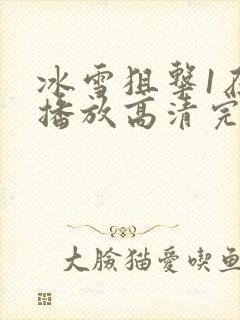 冰雪狙擊1在
播放高清完
大臉猫愛喫鱼